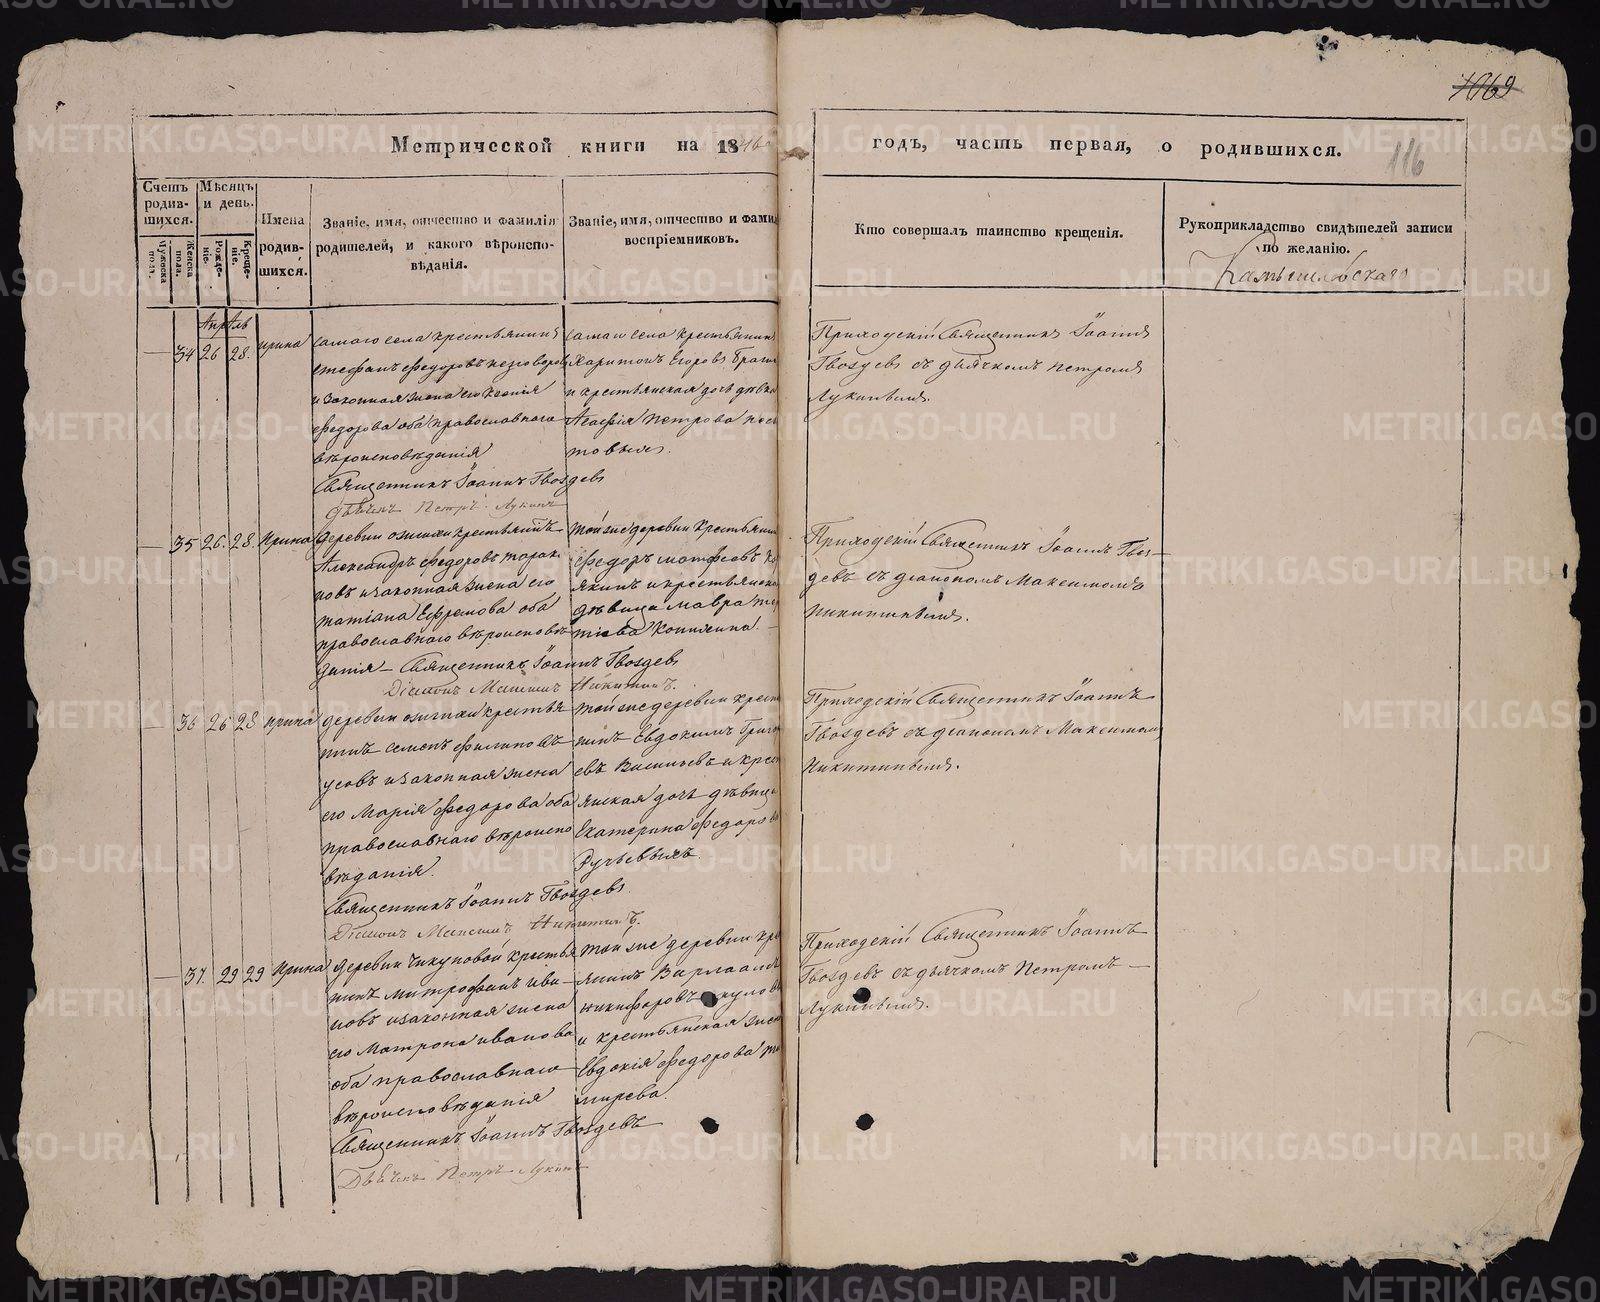 1069
116
Метрической книги на 1846
годъ, часть первая, о родившихся.
Счетъ родив-шихся.
Мѣсяцъ и день.
Мужеска пола.
Женска пола.
Рожде-ніе.
Креще-ніе.
Имена родив-шихся.
Званіе, имя, отчество и фамилія
родителей, и какого вѣроиспо-
вѣданія.
Званіе, имя, отчество и фами
воспріемниковъ.
Кто совершалъ таинство крещенія.
Рукоприкладство свидѣтелей записи
по желанію.
Камышловскаго
Апрѣль
— 34 26 28. Ирина
самаго села крестьянинъ
Стефанъ Федоровъ
и законная жена его Ксенія
Федорова оба православнаго
вѣроисповѣданія
Священникъ Іоаннъ Гвоздевъ
Дьячекъ Петръ Лукинъ
самаго села крестьянинъ
Харитонъ Егоровъ
и крестьянская дочь дѣвка
Агафія Петрова
Приходскій Священникъ Іоаннъ
Гвоздевъ съ дьячкомъ Петромъ
Лукинымъ.
— 35 26. 28. Ирина
деревни крестьянинъ
Александръ Федоровъ Тарак
новъ и законная жена его
Татіана Ефремова оба
православнаго вѣроисповѣ
данія — Священникъ Іоаннъ Гвоздевъ
Діаконъ Максимъ Никитинъ.
той же деревни крестьянин
Федоръ Матфеевъ
якинъ и крестьянская
дѣвица Мавра
Приходскій Священникъ Іоаннъ Гвоз-
девъ съ діакономъ Максимомъ
Никитинымъ.
— 36 26 28 Ирина
деревни крестья
нинъ Семенъ Филиповъ
Усовъ и законная жена
его Марія Федорова оба
православнаго вѣроиспо
вѣданія.
Священникъ Іоаннъ Гвоздевъ
Діаконъ Максимъ Никитинъ.
той же деревни крест
нинъ Евдокимъ Григор
евъ Васильевъ и крес
янская дочь дѣвица
Екатерина Федорова
Ручьевыхъ.
Приходскій Священникъ Іоаннъ
Гвоздевъ съ діакономъ Максимомъ
Никитинымъ.
— 37. 29 29 Ирина
деревни Чикуновой крестья
нинъ Митрофанъ Ива
новъ и законная жена
его Матрона Иванова
оба православнаго
вѣроисповѣданія
Священникъ Іоаннъ Гвоздевъ
Дьячекъ Петръ Лукинъ
той же деревни кре
янинъ Варлаамъ
Никифоровъ
и крестьянская жен
Евдокія Федорова
Приходскій Священникъ Іоаннъ
Гвоздевъ съ дьячкомъ Петромъ —
Лукинымъ.
METRIKI.GASO-URAL.RU